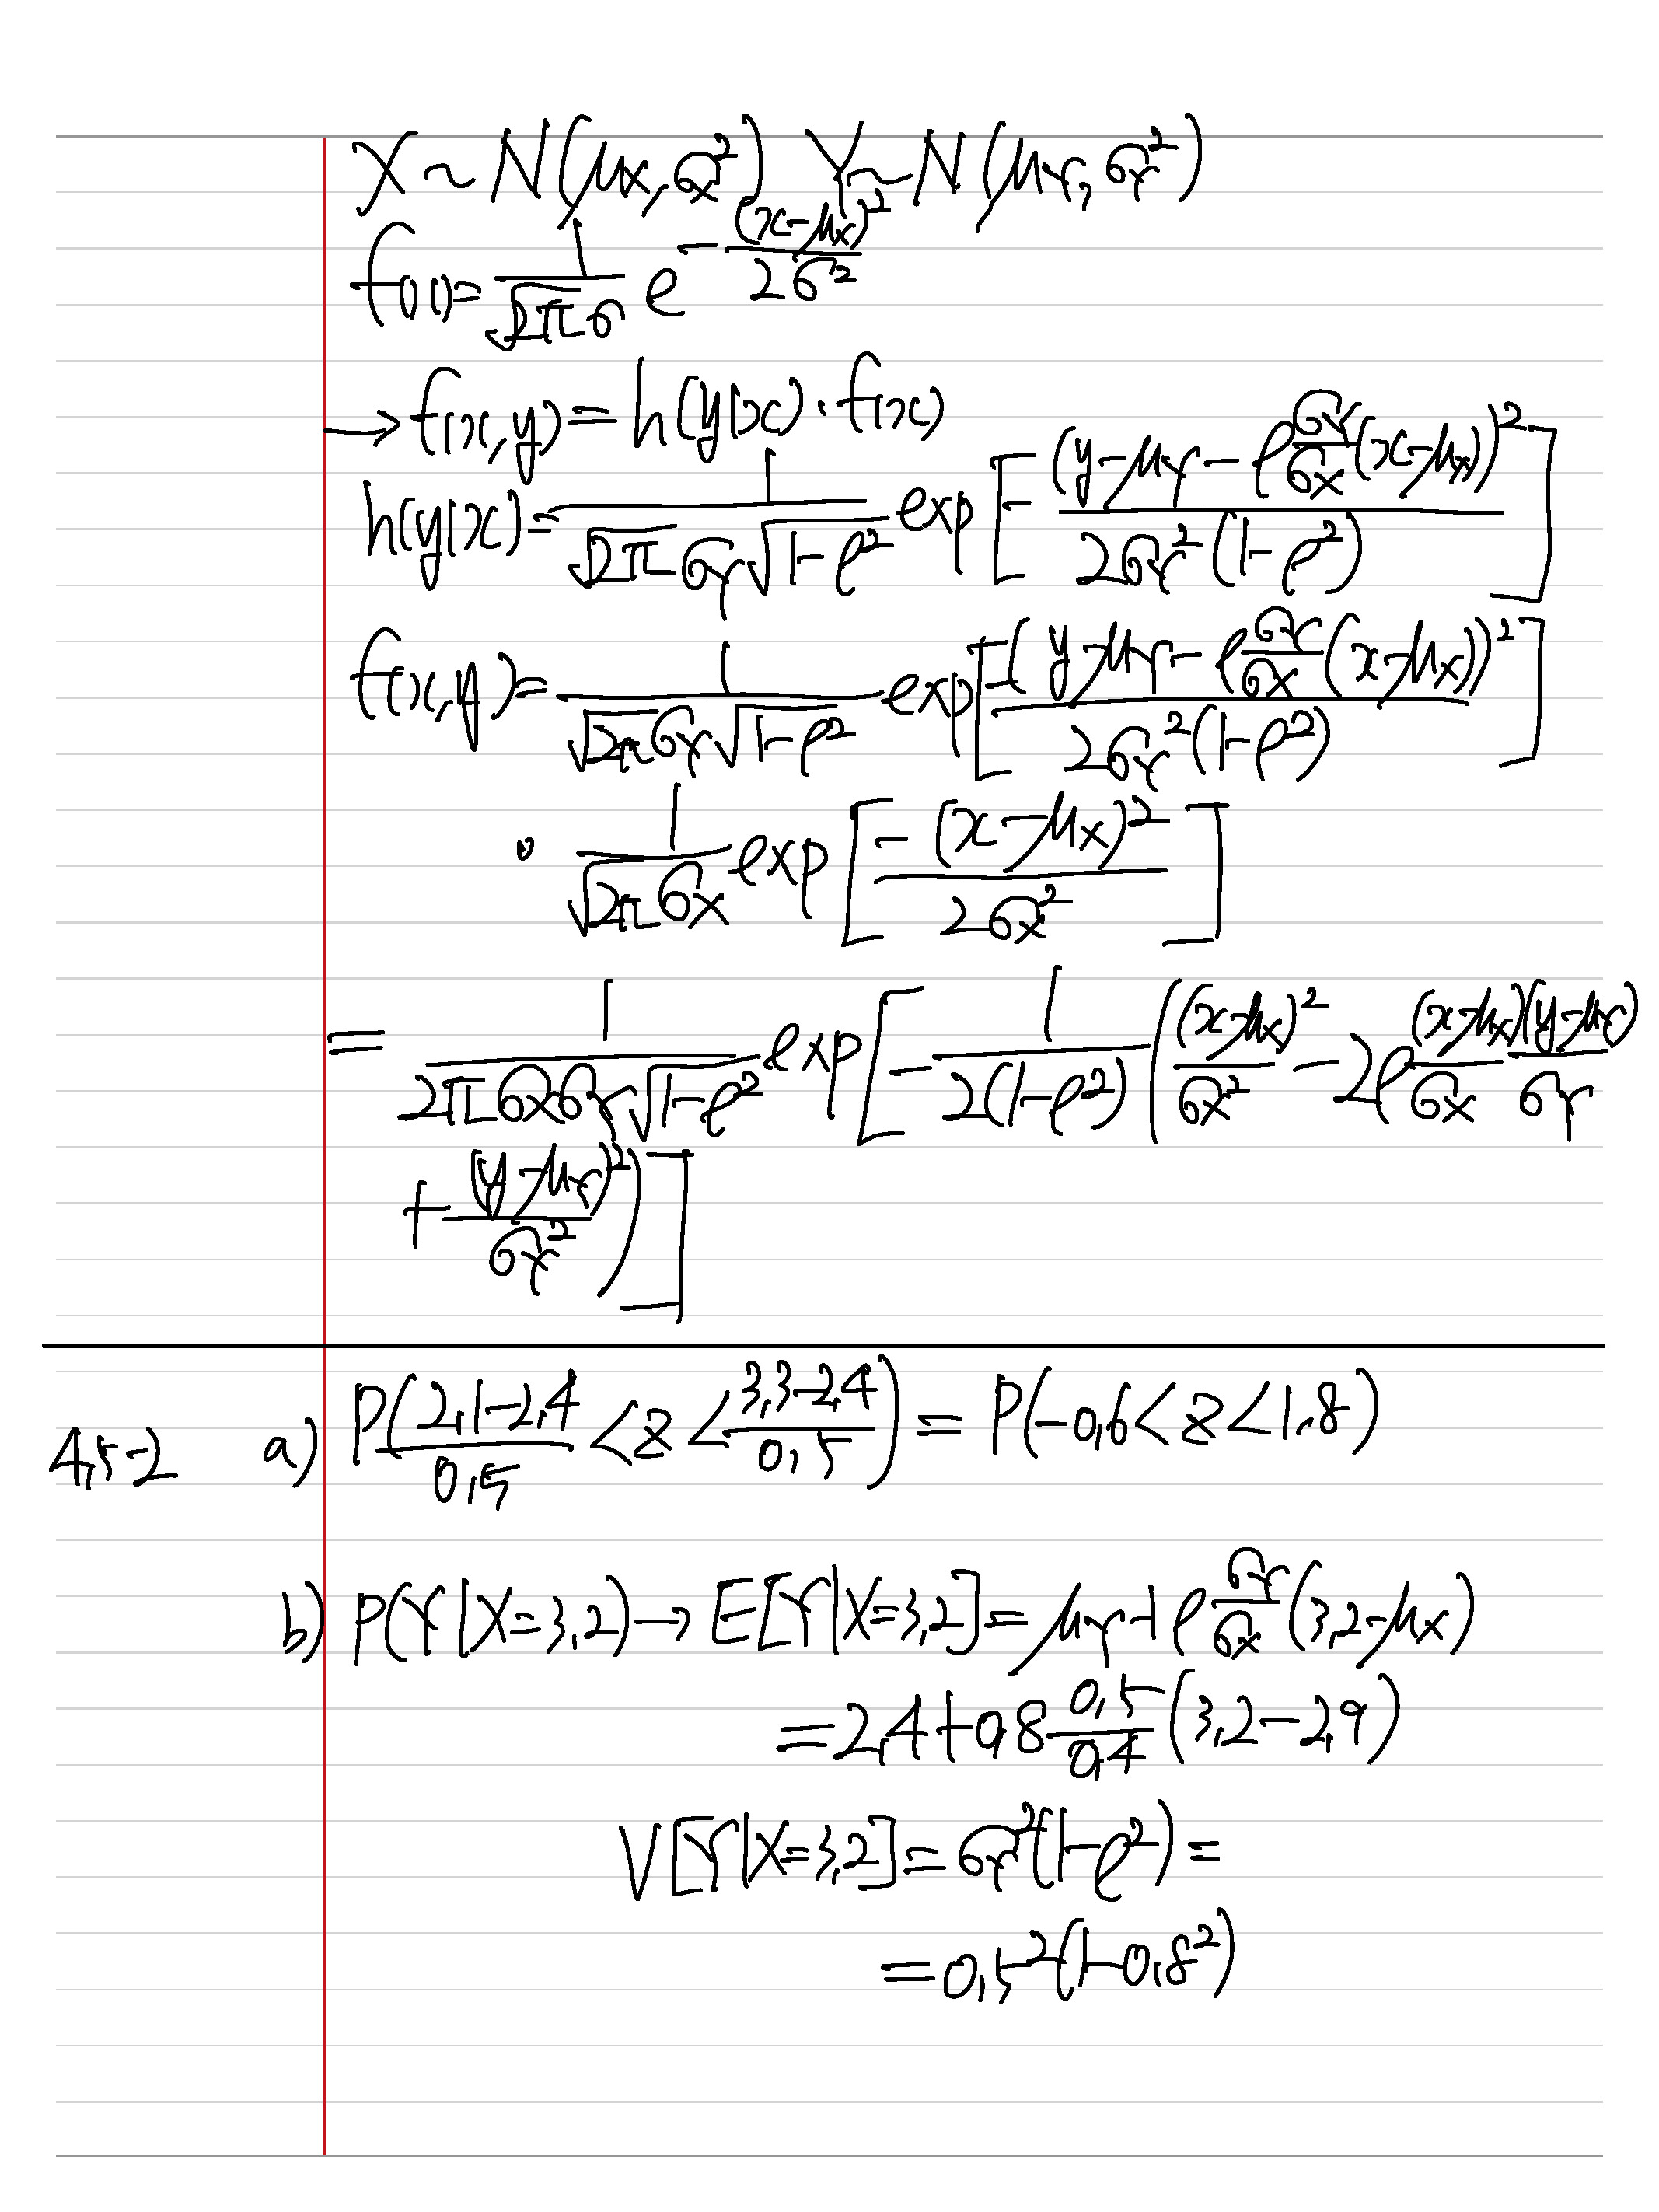 X ~ N(μx, σx²) Y ~ N(μY, σY²)
f(x) = 1/(√2π σ) e^-(x-μx)²/2σ²
→ f(x,y) = h(y|x) · f(x)
h(y|x) = 1/(√2π σY √1-ρ²) exp[- (y-μY-ρ σY/σx (x-μx))² / 2σY²(1-ρ²)]
f(x,y) = 1/(√2π σY √1-ρ²) exp[-(y-μY-ρ σY/σx (x-μx))² / 2σY²(1-ρ²)]
· 1/(√2π σx) exp[-(x-μx)² / 2σx²]
= 1/(2π σx σY √1-ρ²) exp[- 1/2(1-ρ²) ((x-μx)²/σx² - 2ρ (x-μx)/σx (y-μY)/σY
+ (y-μY)²/σY²)]
4,5-2 a) P((2,1-2,4)/0,5 < z < (3,3-2,4)/0,5) = P(-0,6 < z < 1,8)
b) P(Y|X=3,2) → E[Y|X=3,2] = μY + ρ σY/σx (3,2-μx)
= 2,4 + 0,8 0,5/0,4 (3,2-2,9)
V[Y|X=3,2] = σY²(1-ρ²) =
= 0,5²(1-0,8²)